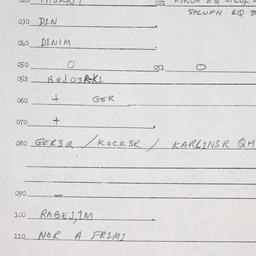 030 DIN
040 DINIM
050 O 051 O
052 BUJO3R-K1
060 + GER
070 +
080 GER3R / KOCK3R / KARLIN3R QH
090 –
100 RABEJ,IM
110 NOR A FRIMI